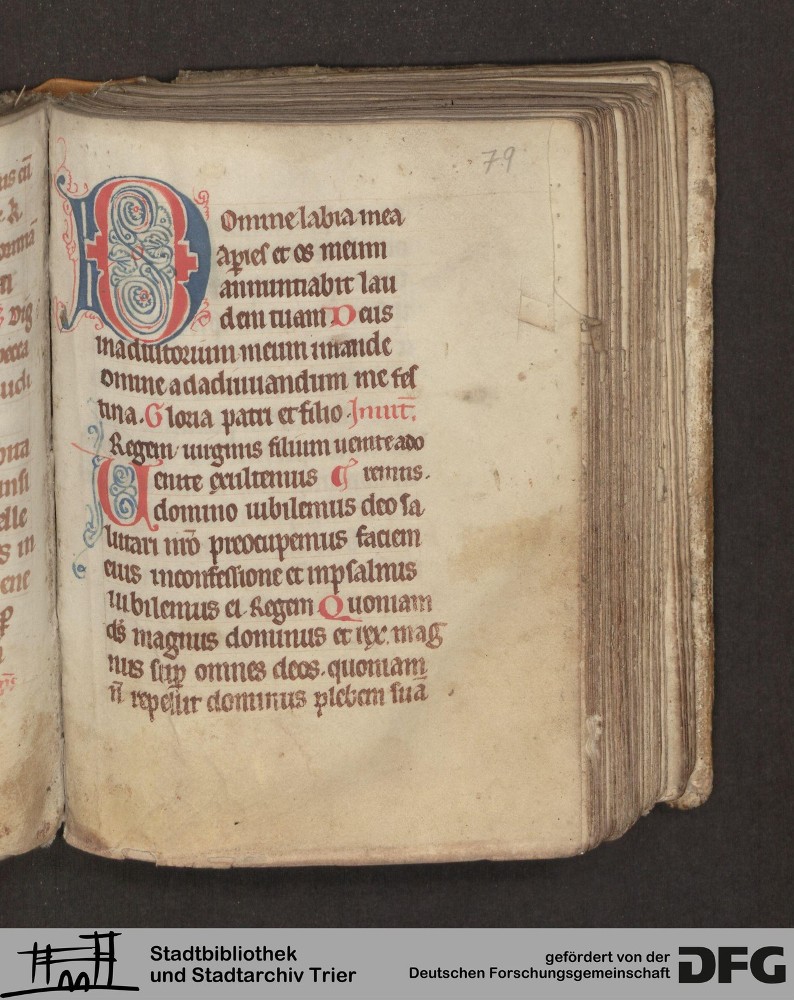 79
Domine labia mea
Aꝑies et os meum
annuntiabit lau
dem tuam Deus
in adiutorium meum intende
omine ad adiuuandum me fes
tina. Gloria patri et filio Inuit̄.
Regem uirginis filium uenite ado
Uenite exultemus ¶ remus.
domino iubilemus deo sa
lutari nr̄o preocupemus faciem
eius in confessione et in psalmis
iubilemus ei. Regem Quoniam
ds̄ magnus dominus et rex. mag
nus suꝑ omnes deos. quoniam
n̄ repellit dominus plebem suā
Stadtbibliothek
und Stadtarchiv Trier
gefördert von der
Deutschen Forschungsgemeinschaft
DFG